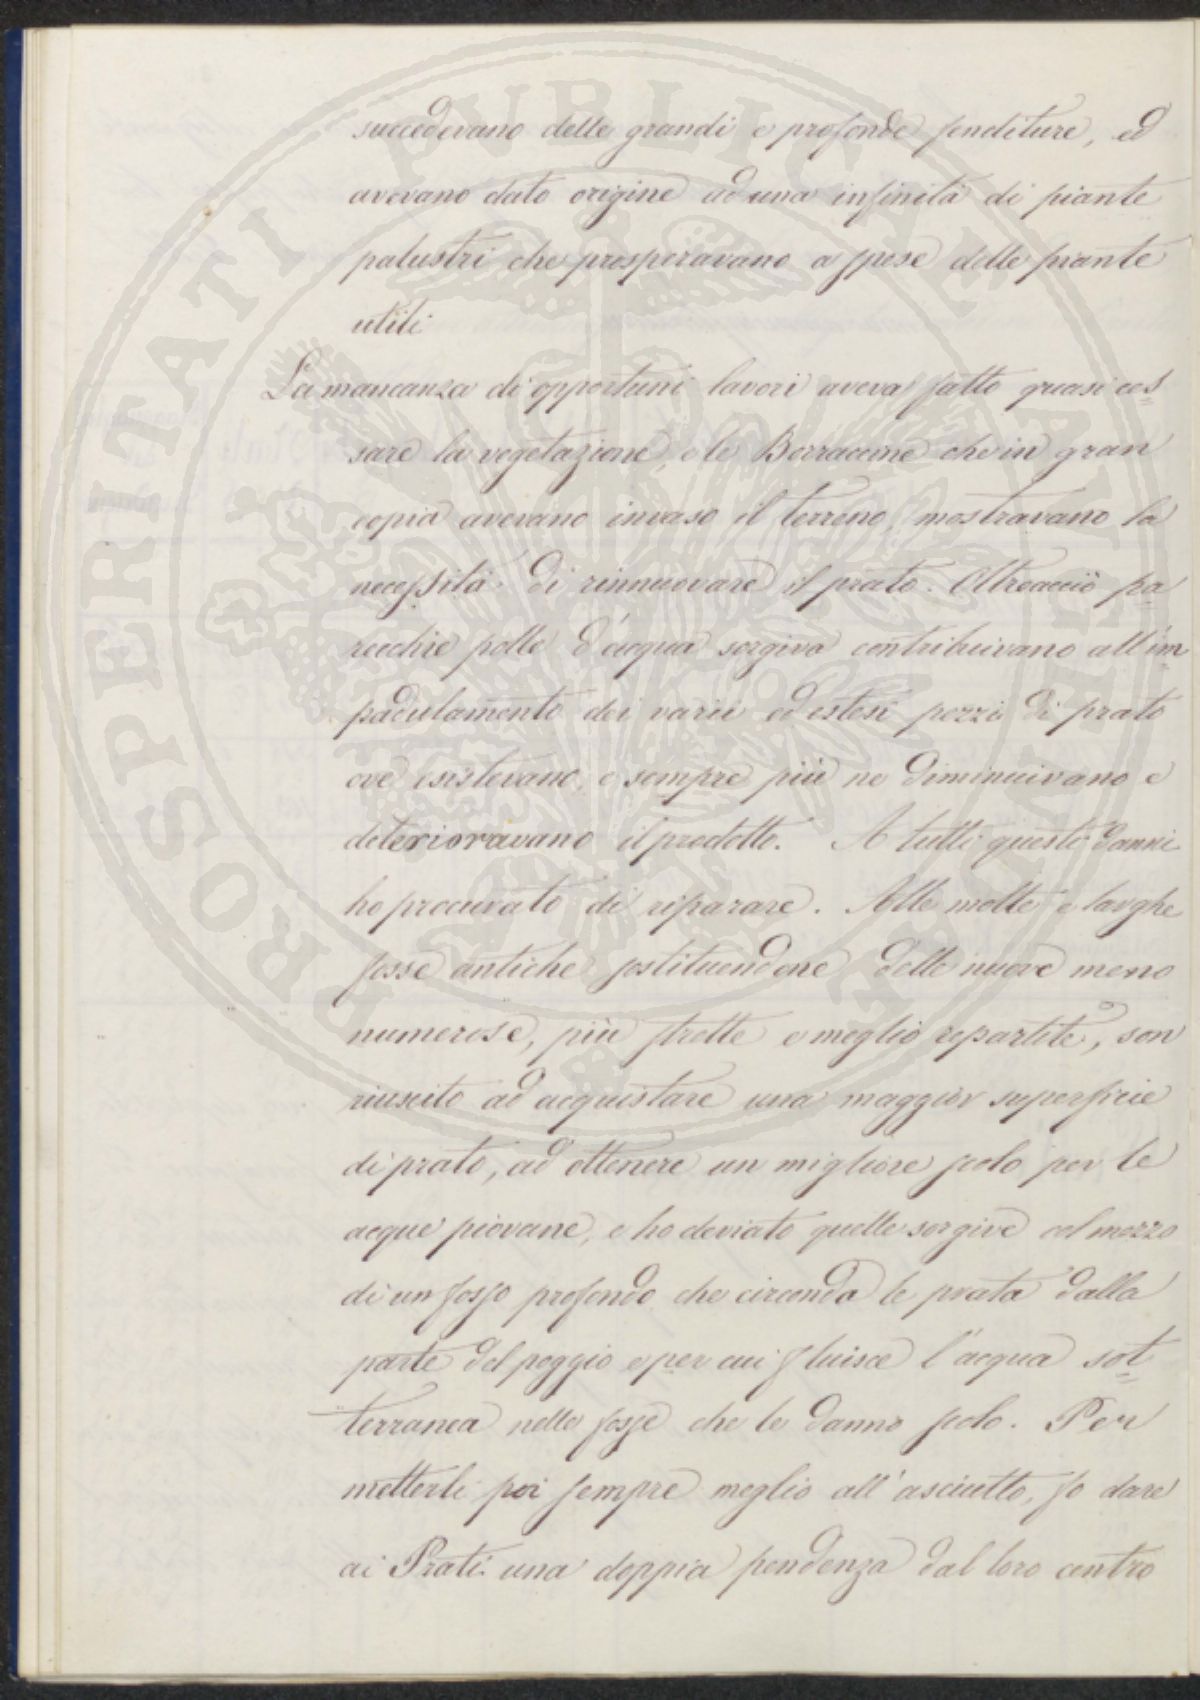 succedevano delle grandi e profonde fenditure, ed
avevano dato origine ad una infinità di piante
palustri che prosperavano a spese delle piante
utili
La mancanza di opportuni lavori aveva fatto quasi ces
sare la vegetazione, e le Borraccine che in gran
copia avevano invaso il terreno, mostravano la
necessità di rinnuovare il prato. Oltreacciò pa
recchie polle d'acqua sorgiva contribuivano all'im
padulamento dei varii ed estesi pezzi di prato
ove esistevano, e sempre più ne diminuivano e
deterioravano il prodotto. A tutti questi danni
ho procurato di riparare. Alle molte e larghe
fosse antiche sostituendone delle nuove meno
numerose, più strette e meglio repartite, son
riuscito ad acquistare una maggior superficie
di prato, ad ottenere un migliore scolo per le
acque piovane, e ho deviato quelle sorgive col mezzo
di un fosso profondo che circonda le prata dalla
parte del poggio e per cui fluisce l'acqua sot
terranea nelle fosse che le danno scolo. Per
metterli poi sempre meglio all'asciutto, fo dare
ai Prati una doppia pendenza dal loro centro
PROSPERITATI PUBLICAE AUGENDAE